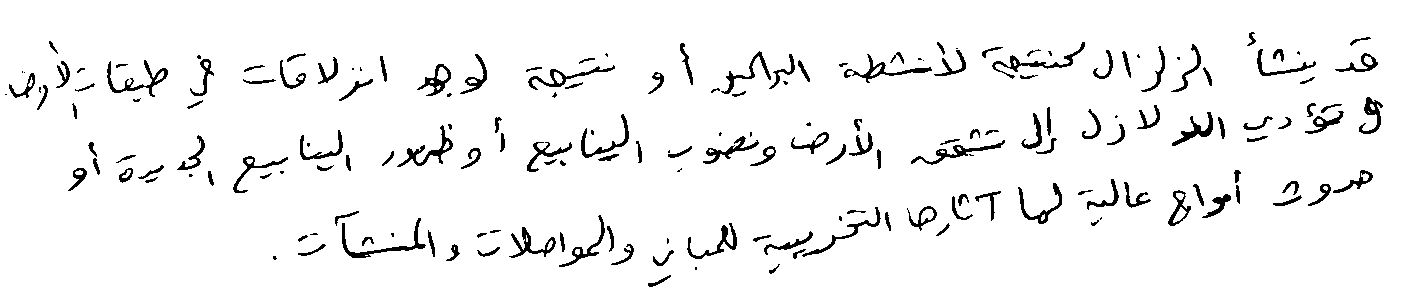 قد ينشأ الزلزال كنتيجة لأنشطة البراكين أو نتيجة لوجود انزلاقات في طبقات الأرض
وتؤدي الزلازل إلى تشقق الأرض ونضوب الينابيع أو ظهور الينابيع الجديدة أو
حدوث أمواج عالية لها آثارها التخريبية للمباني والمواصلات والمنشآت .